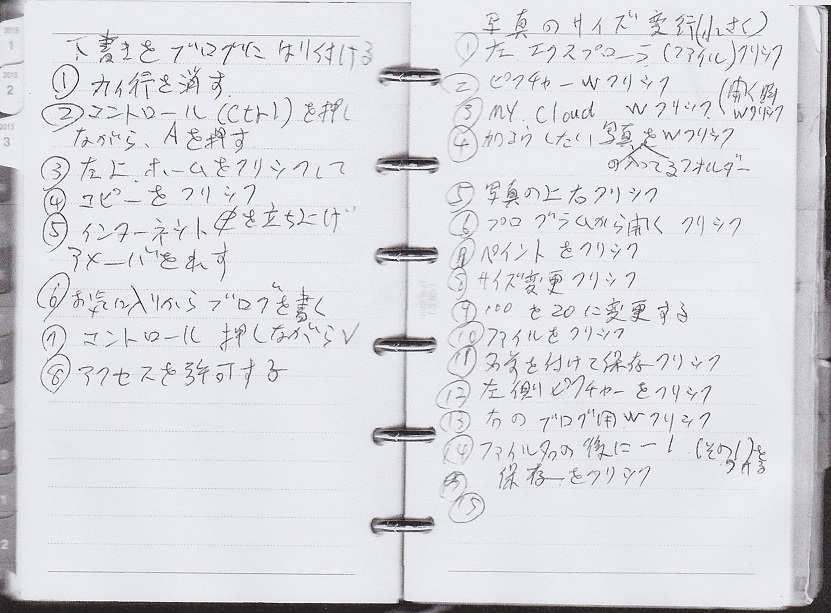 2015
1
2015
2
2015
3
下書きをブログにはり付ける
① カイ行を消す
② コントロール(Ctrl)を押し
ながら、Aを押す
③ 左上.ホームをクリックして
④ コピーをクリック
⑤ インターネットを立ち上げ
アメーバを
⑥ お気に入りからブログを書く
⑦ コントロール 押しながらV
⑧ アクセスを許可する
写真のサイズ変行(小さく)
① 左.エクスプローラ(ファイル)クリック
② ピクチャーWクリック
③ MY.Cloud Wクリック(開く
Wクリック
④ 加こうしたい写真をWクリック
の入ってるフォルダー
⑤ 写真の上右クリック
⑥ プログラムから開く クリック
⑦ ペイントをクリック
⑧ サイズ変更クリック
⑨ 100を20に変更する
⑩ ファイルをクリック
⑪ 名前を付けて保存クリック
⑫ 左側ピクチャーをクリック
⑬ 右のブログ用Wクリック
⑭ ファイル名の後に-1 (その1)を
保存をクリック
⑮
1
2